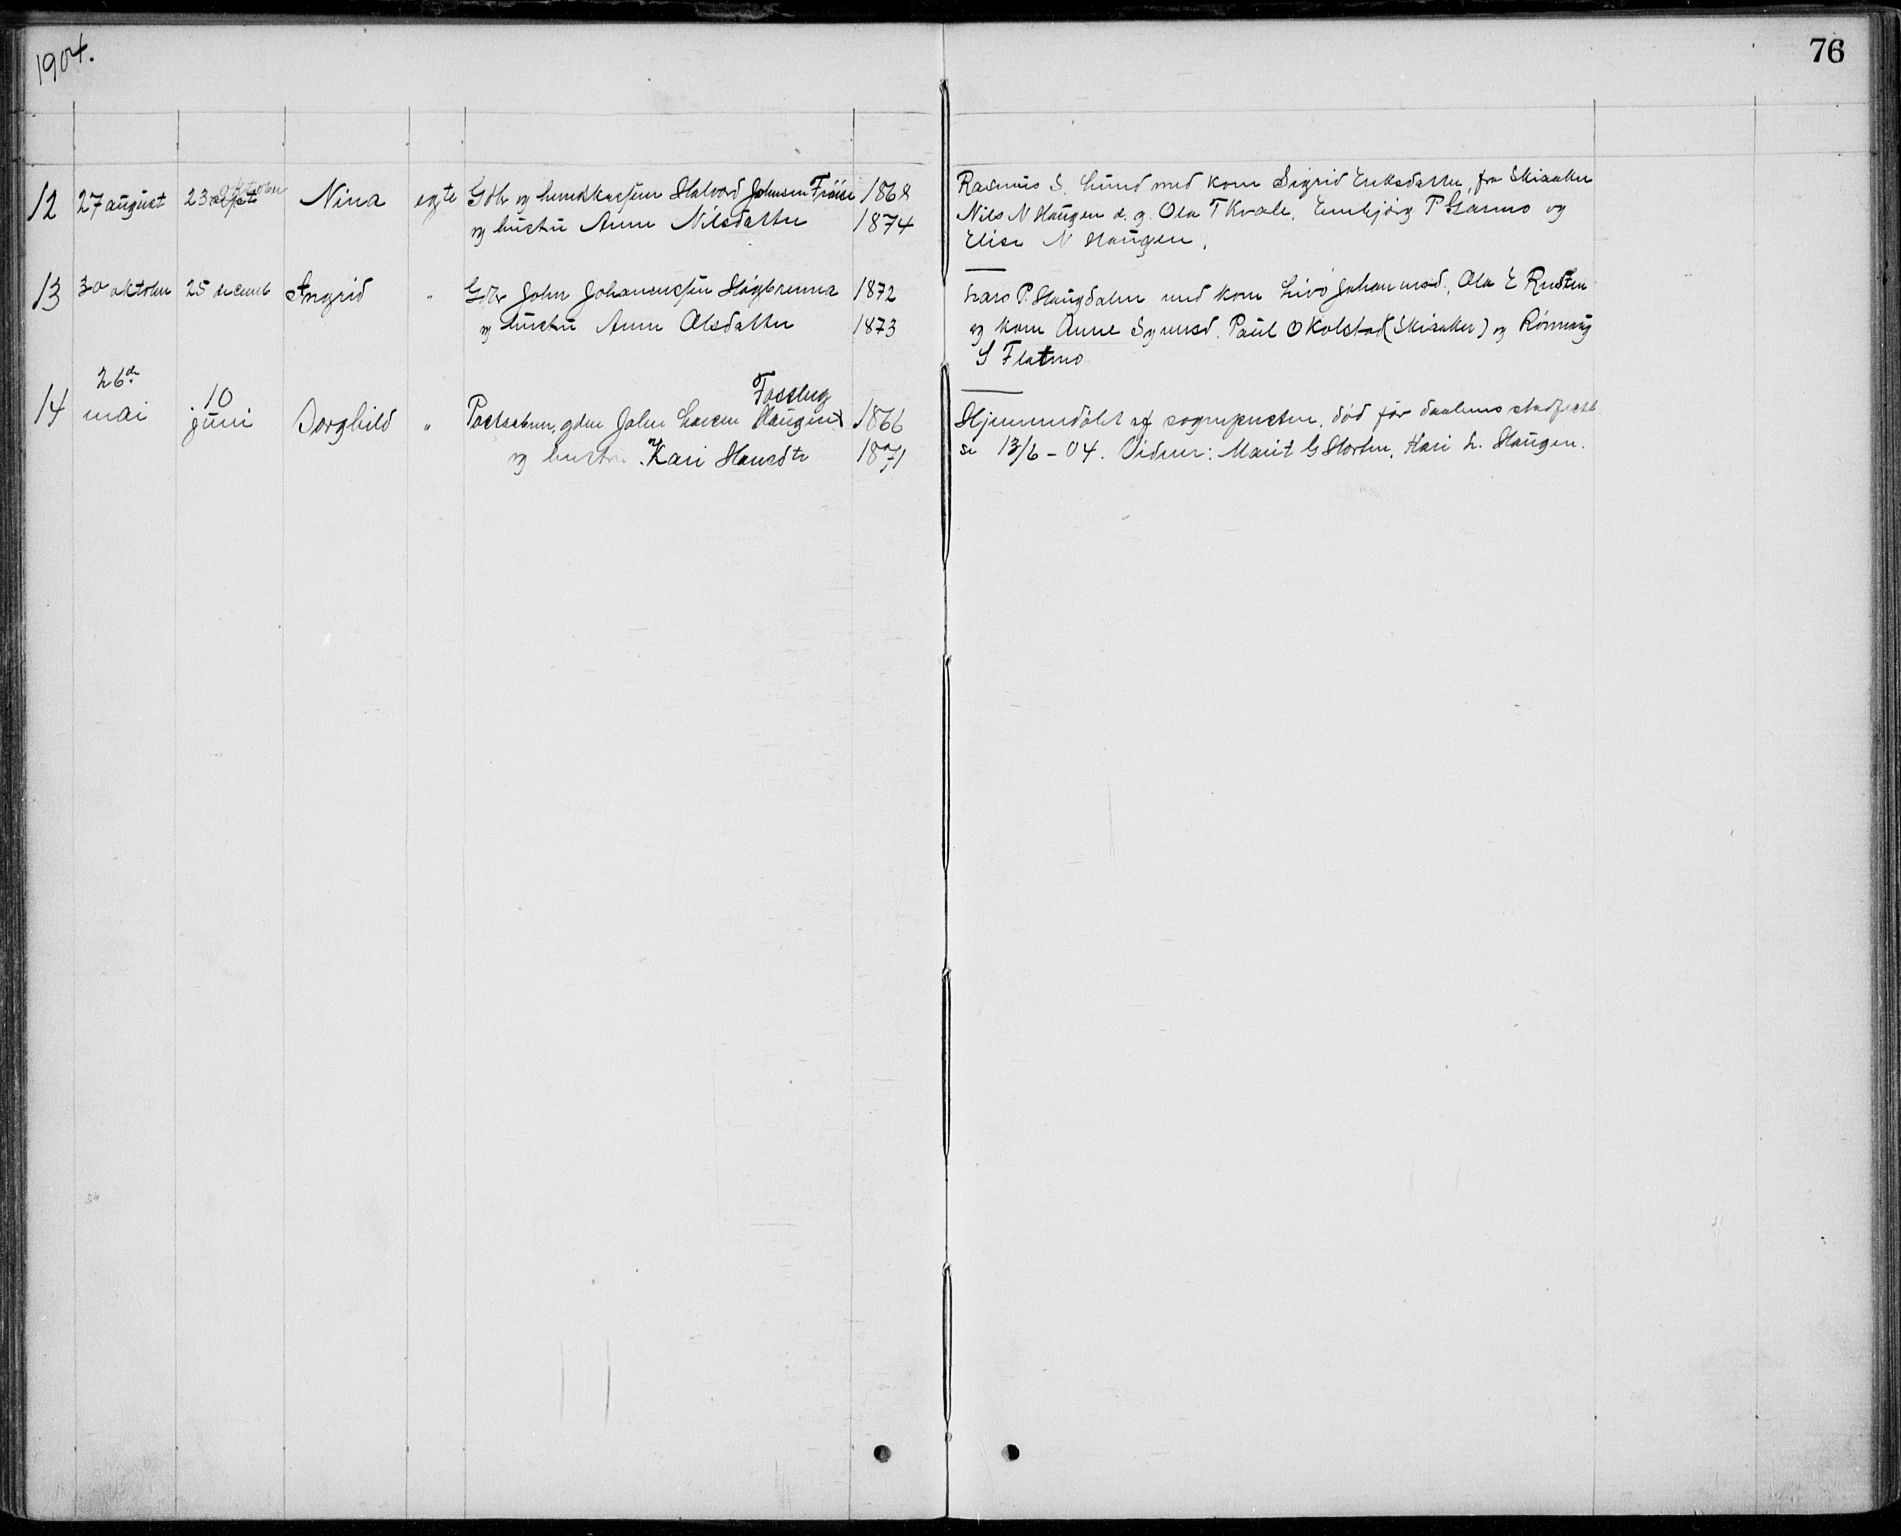 1904.
76
12 27 august 23 sept oktober Nina egte Gdbr og Halvord Johnsen Frøise 1868
og hustru Anne Nilsdatter 1874
Rasmus S. Lund med kone Sigrid Eriksdatter, fra Skiaaker
Nils N Haugen d. y. Ola T Kvale, Embjørg P Garmo og
Elise N Haugen.
13 30 oktober 25 decemb Ingrid " Gdbr John Johannessen Høgbrenna 1872
og hustru Anne Olsdatter 1873
Lars P. Haugdalen med kone Livø Johannesd., Ola E Rusten
og kone Anne Symnsd. Paul O Kolstad (Skiaaker) og Rønnaug
S Flatmo
14 26de mai 10 juni Borghild " gbr John Larsen Haugen Fossheg 1866
og hustru Kari Hansdtr 1871
Hjemmedøbt af sogneprester, død før daabens stadfæstel
se 13/6 - 04. Vidner: Marit G Storten, Kari L. Haugen.